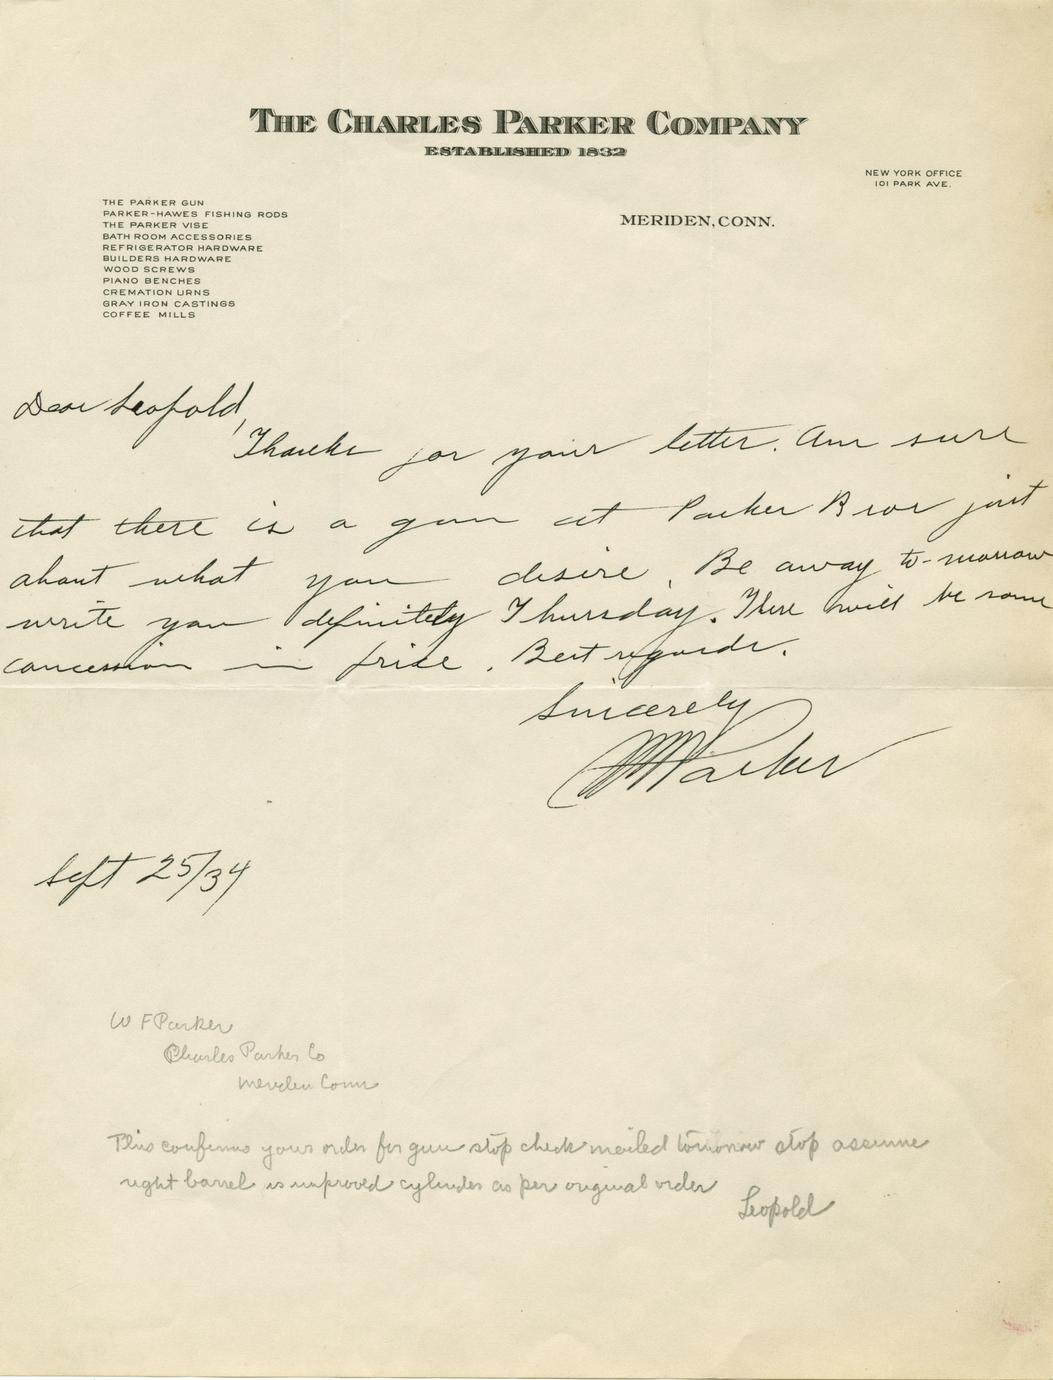 THE CHARLES PARKER COMPANY
ESTABLISHED 1832
NEW YORK OFFICE
101 PARK AVE.
THE PARKER GUN
PARKER-HAWES FISHING RODS
THE PARKER VISE
BATH ROOM ACCESSORIES
REFRIGERATOR HARDWARE
BUILDERS HARDWARE
WOOD SCREWS
PIANO BENCHES
CREMATION URNS
GRAY IRON CASTINGS
COFFEE MILLS
MERIDEN, CONN.
Dear Leopold,
Thanks for your letter. Am sure
that there is a gun at Parker Bros just
about what you desire. Be away to-morrow
write you definitely Thursday. There will be some
concession in price. Best regards.
Sincerely
Parker
Sept 25/34
W F Parker
Charles Parker Co
Meriden Conn
This confirms your order for gun stop check mailed tomorrow stop assume
right barrel is improved cylinder as per original order
Leopold